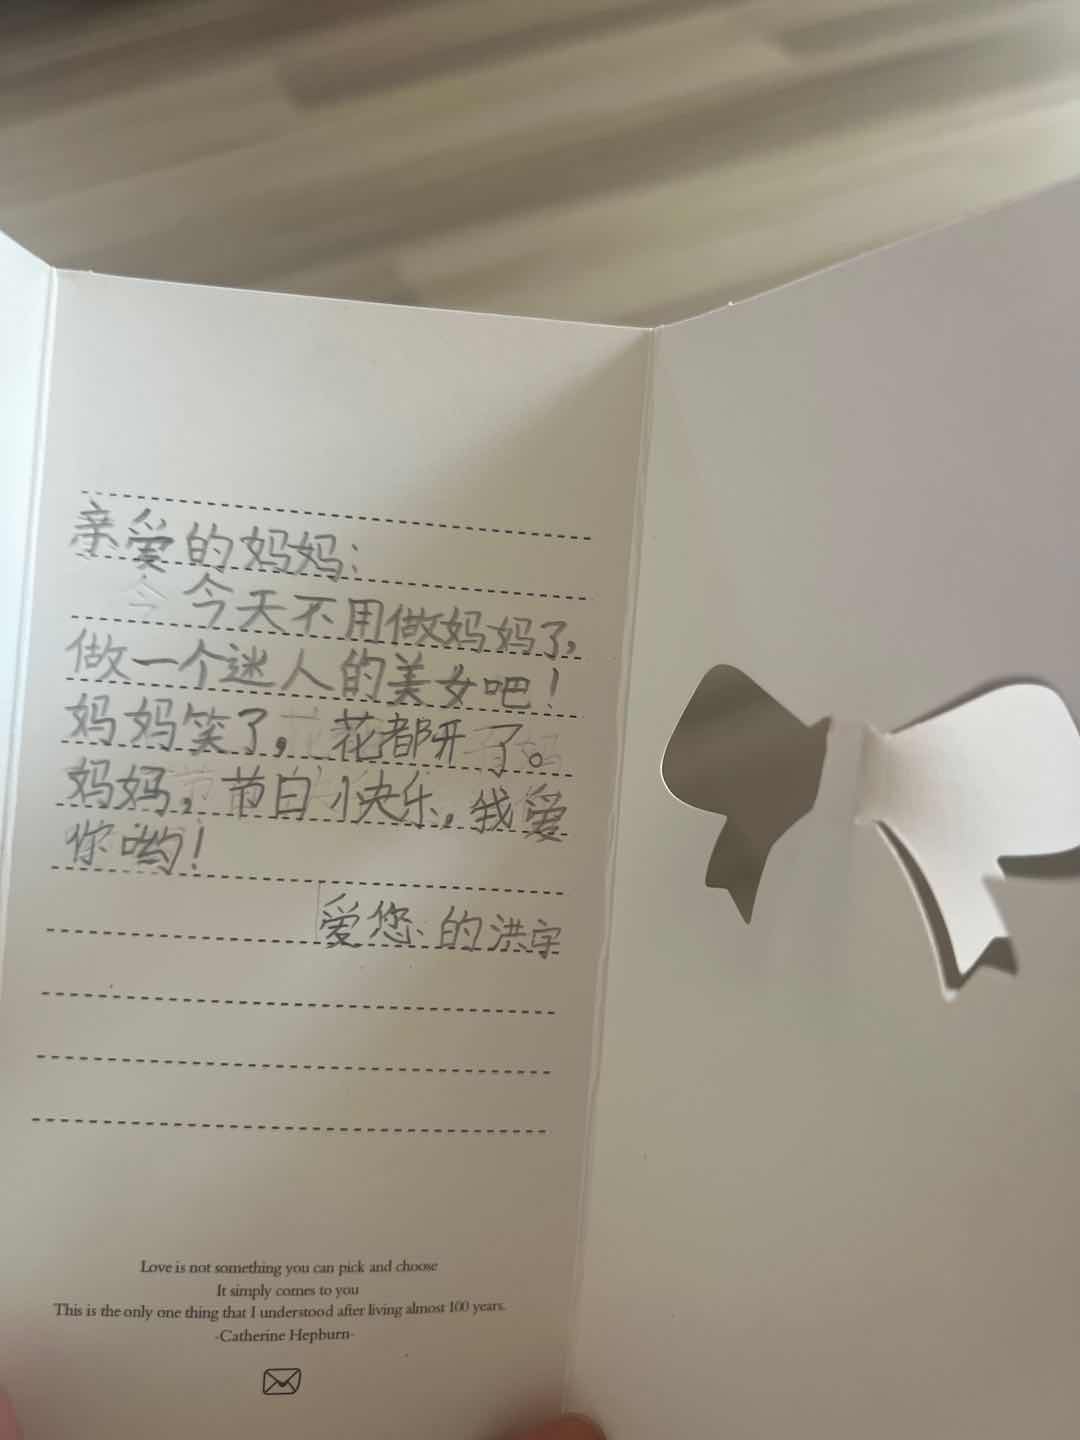 亲爱的妈妈：
今天不用做妈妈了，
做一个迷人的美女吧！
妈妈笑了，花都开了。
妈妈，节日快乐，我爱
你哟！
爱您的洪宇
Love is not something you can pick and choose
It simply comes to you
This is the only one thing that I understood after living almost 100 years.
-Catherine Hepburn-